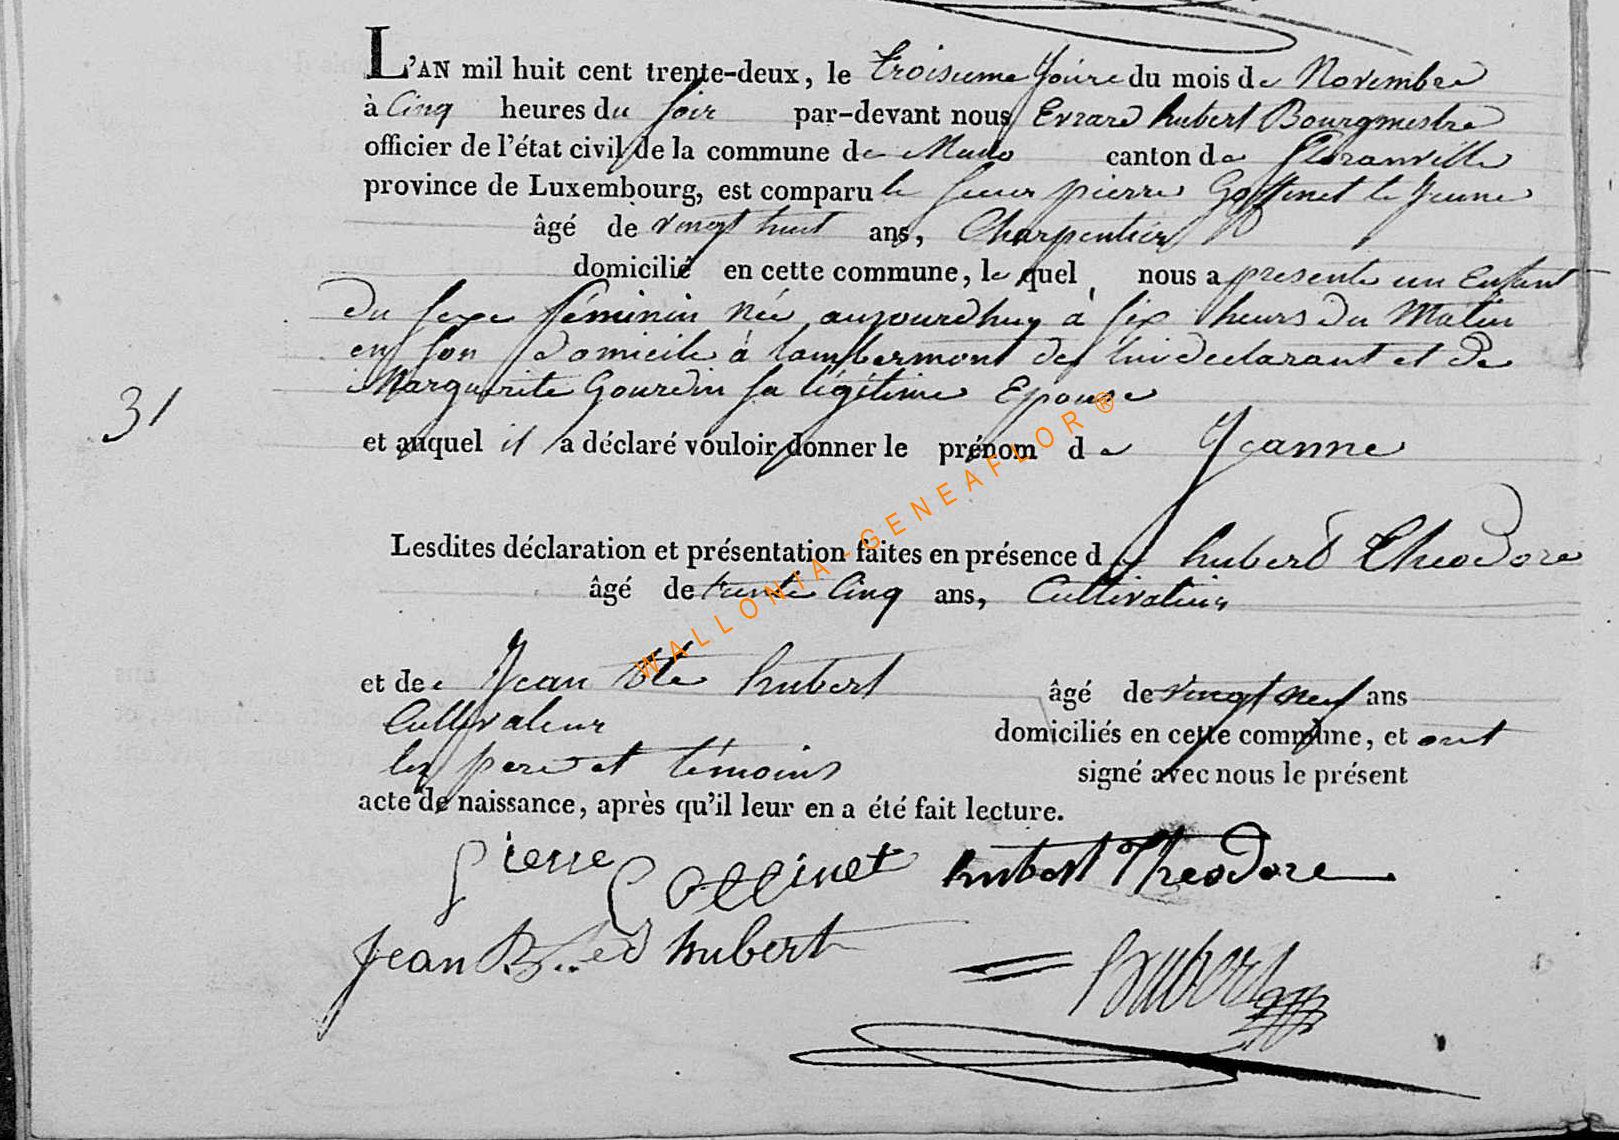 L'AN mil huit cent trente-deux, le troisieme Jour du mois de Novembre
à Cinq heures du soir par-devant nous Evrard hubert Bourgmestre
officier de l'état civil de la commune de Muno canton de floranville
province de Luxembourg, est comparu le sieur pierre Goffinet le Jeune
âgé de vingt huit ans, Charpentier
domicilié en cette commune, le quel nous a presente un Enfant
du sexe féminin Née aujourdhuy à six heurs du Matin
en son domicile à lambermont de lui declarant et de
Marguerite Gourdin sa légitime Epouse
31
et auquel il a déclaré vouloir donner le prénom de Jeanne
Lesdites déclaration et présentation faites en présence de hubert Theodore
âgé de trente Cinq ans, Cultivateur
et de Jean Bte hubert âgé de vingt neuf ans
Cultivateur domiciliés en cette commune, et ont
les pere et témoins signé avec nous le présent
acte de naissance, après qu'il leur en a été fait lecture.
pierre Goffinet hubert Theodore
Jean hubert
hubert
WALLONIA-GENEAFLOR®